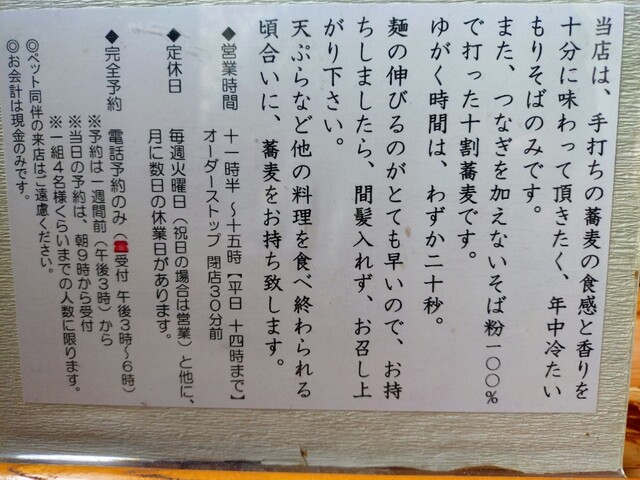 当店は、手打ちの蕎麦の食感と香りを
十分に味わって頂きたく、年中冷たい
もりそばのみです。
また、つなぎを加えないそば粉一〇〇%
で打った十割蕎麦です。
ゆがく時間は、わずか二十秒。
麺の伸びるのがとても早いので、お持
ちしましたら、間髪入れず、お召し上
がり下さい。
天ぷらなど他の料理を食べ終わられる
頃合いに、蕎麦をお持ち致します。
◆営業時間 十一時半〜十五時【平日 十四時まで】
オーダーストップ 閉店30分前
◆定休日 毎週火曜日(祝日の場合は営業)と他に、
月に数日の休業日があります。
◆完全予約 電話予約のみ(☎受付 午後3時〜6時)
※予約は一週間前(午後3時)から
※当日の予約は、朝9時から受付
※一組4名様くらいまでの人数に限ります。
◎ペット同伴の来店はご遠慮ください。
◎お会計は現金のみです。